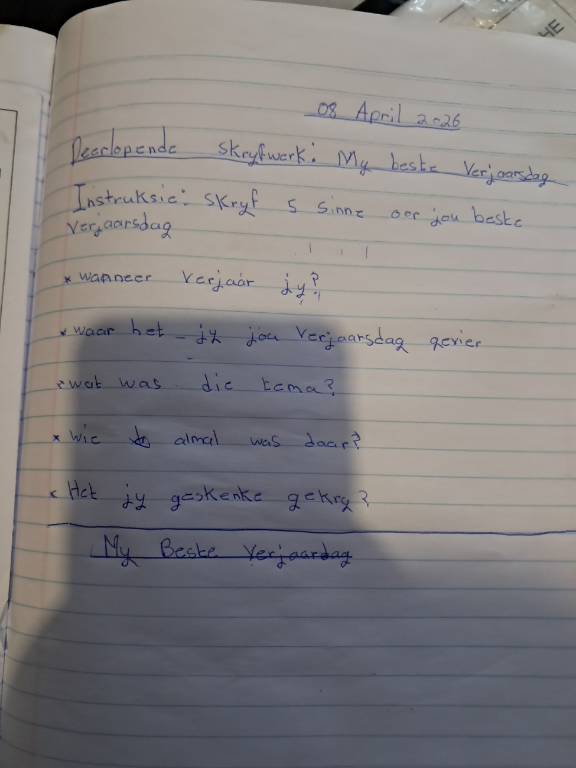 HE
08 April 2026
Deerlopende skryfwerk: My beste Verjaarsdag
Instruksie: skryf 5 sinne oor jou beste
verjaarsdag
* wanneer verjaar jy?
* waar het jy jou verjaarsdag gevier
* wat was die tema?
* wie almal was daar?
* Het jy geskenke gekry?
My Beste Verjaardag